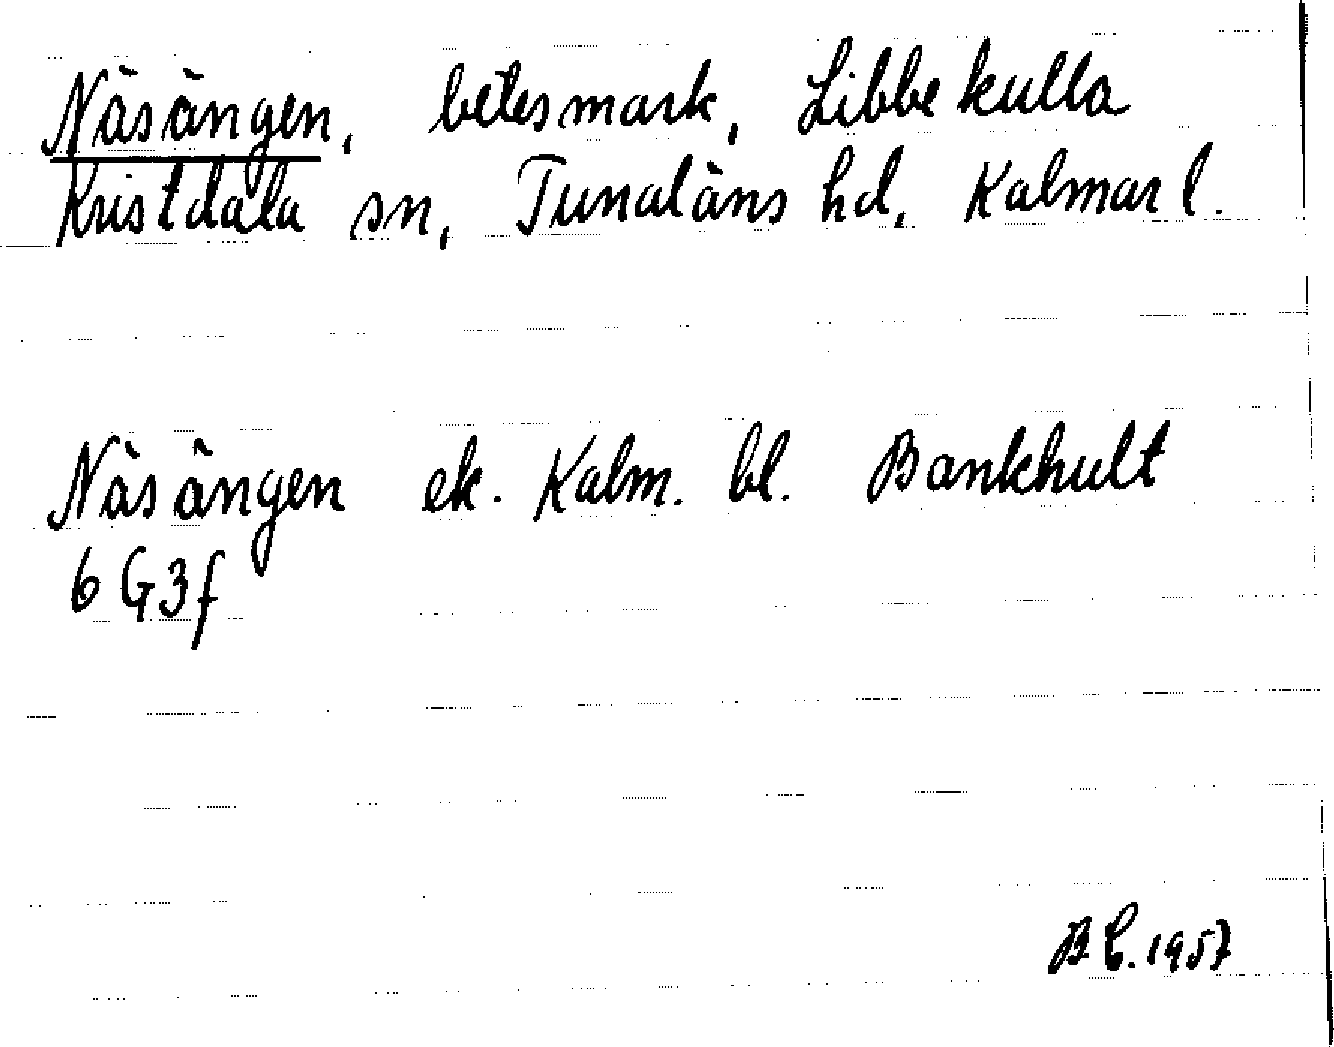 Näsängen, betesmark, Libbekulla
Kristdala sn, Tunaläns hd, Kalmar l.
Näsängen ek. Kalm. bl. Bankhult
6 G3f
B.C. 1957